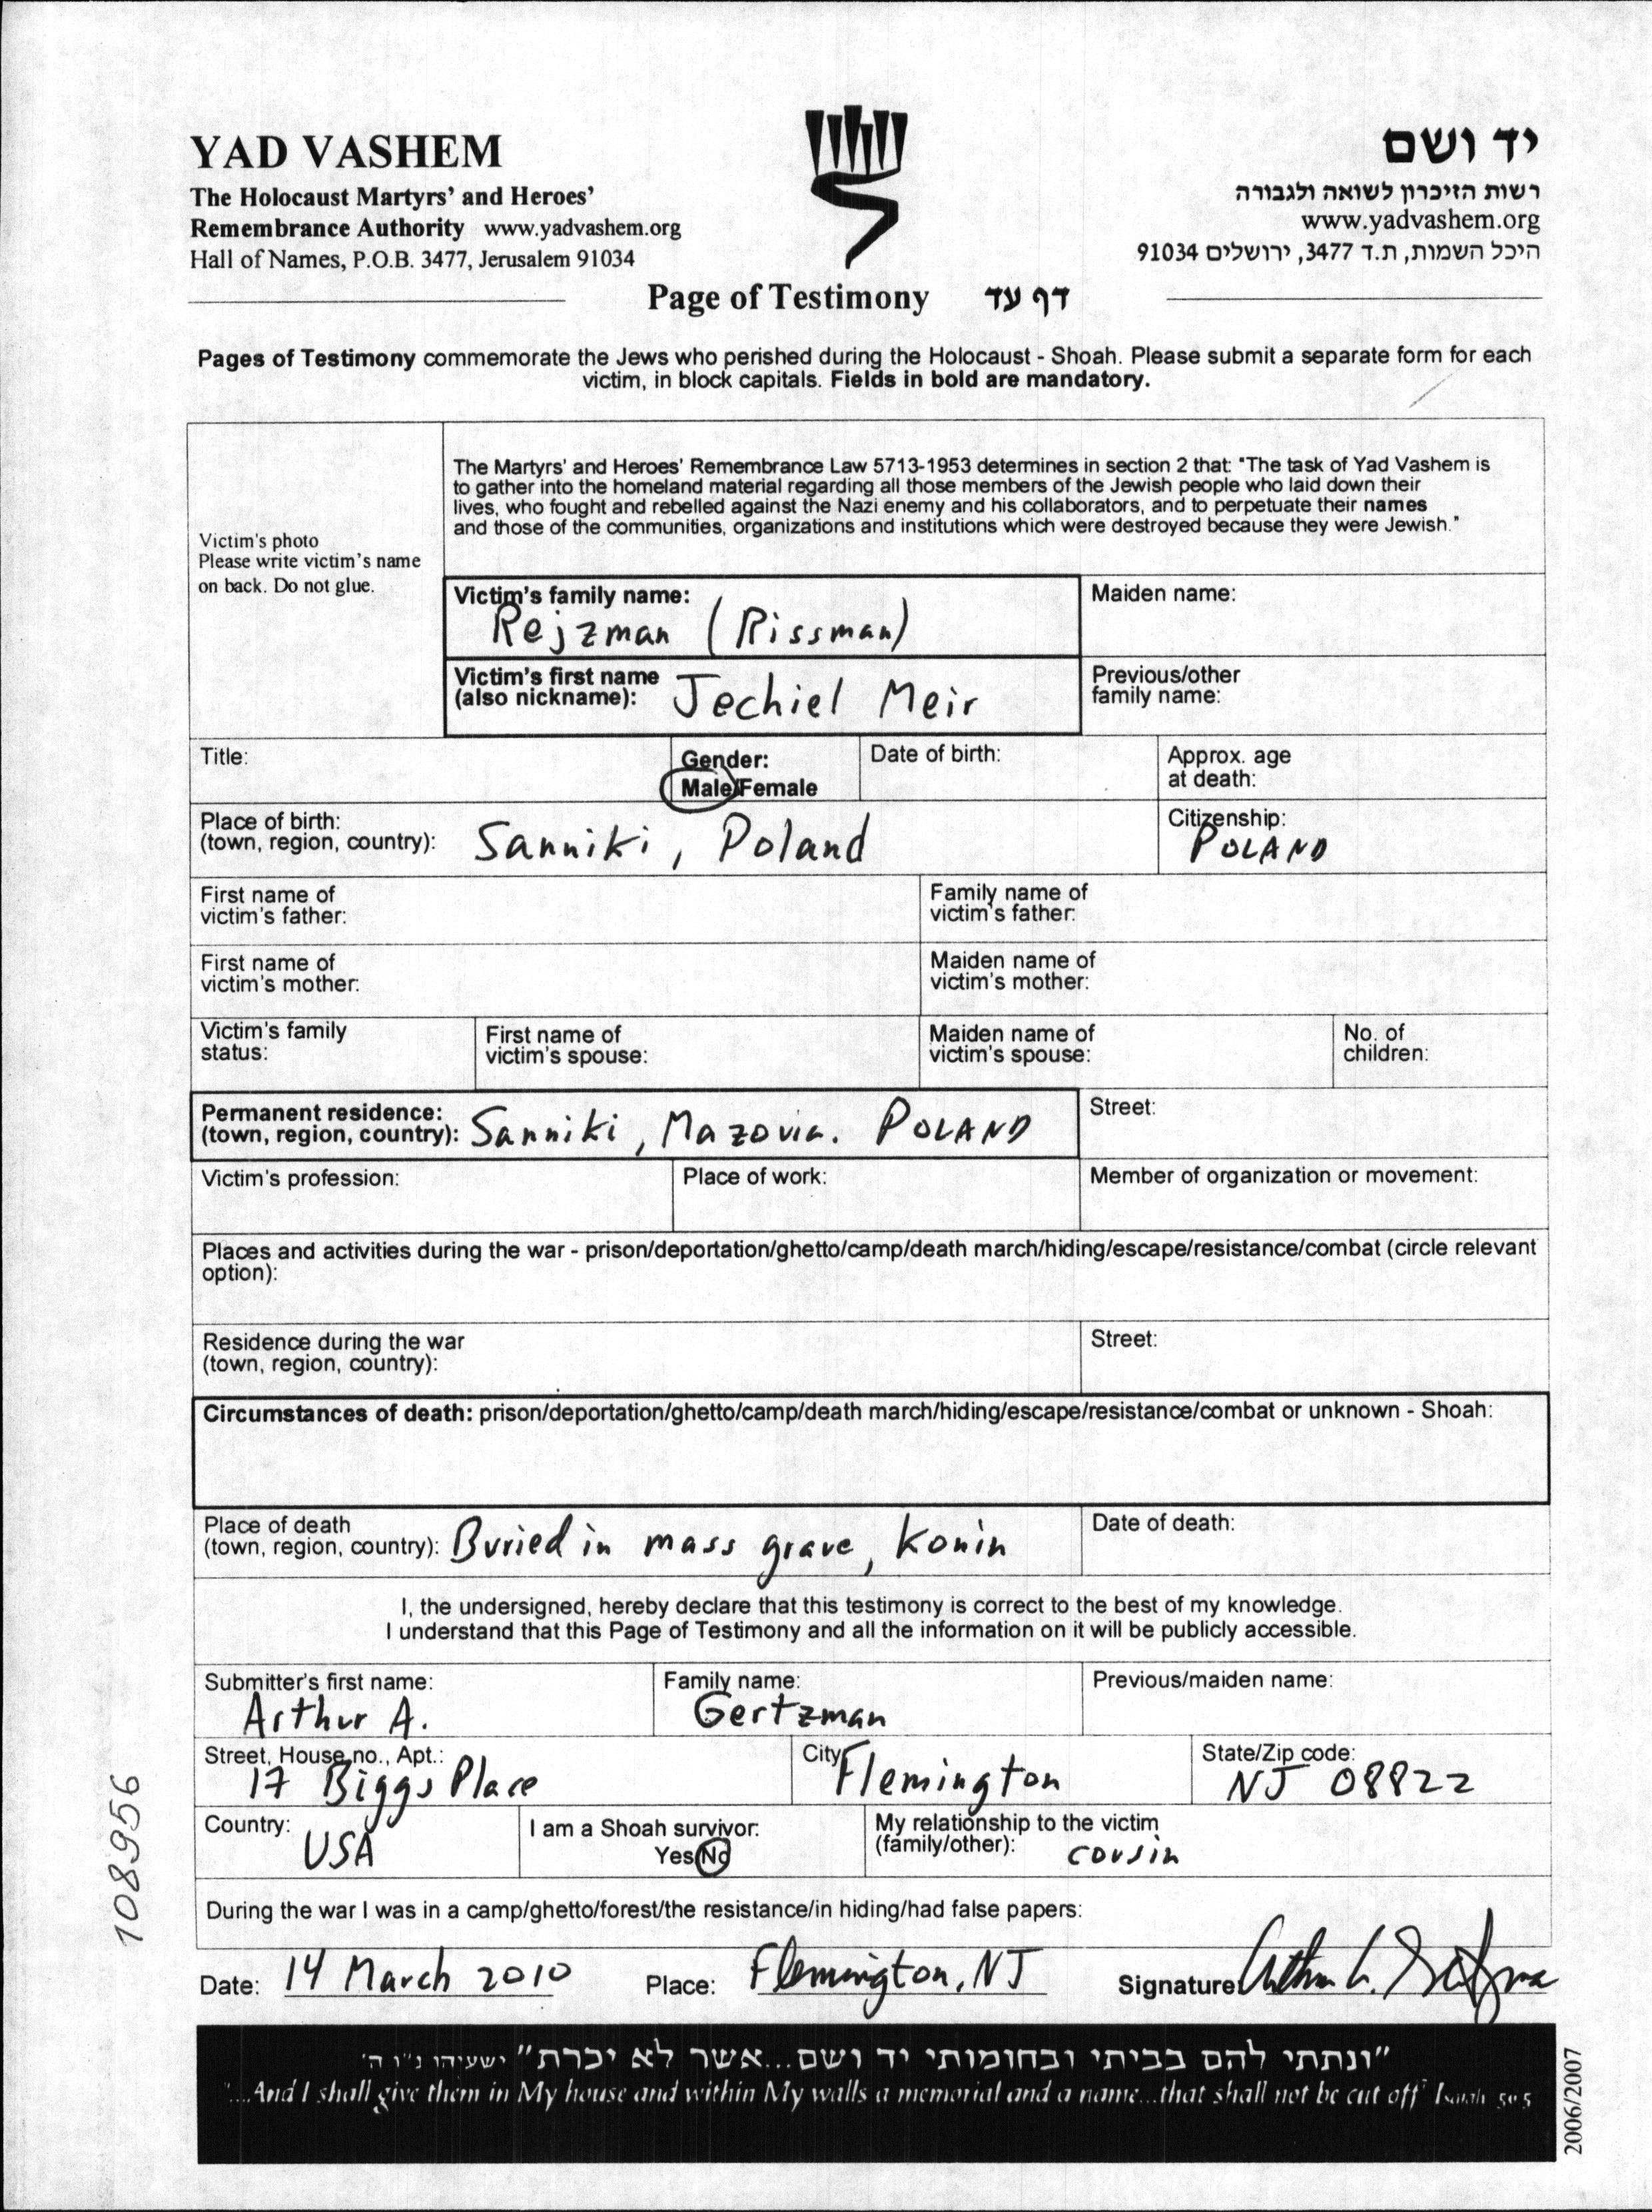 YAD VASHEM
The Holocaust Martyrs' and Heroes'
Remembrance Authority www.yadvashem.org
Hall of Names, P.O.B. 3477, Jerusalem 91034
יד ושם
רשות הזיכרון לשואה ולגבורה
www.yadvashem.org
היכל השמות, ת.ד 3477, ירושלים 91034
Page of Testimony דף עד
Pages of Testimony commemorate the Jews who perished during the Holocaust - Shoah. Please submit a separate form for each
victim, in block capitals. Fields in bold are mandatory.
Victim's photo
Please write victim's name
on back. Do not glue.
The Martyrs' and Heroes' Remembrance Law 5713-1953 determines in section 2 that: "The task of Yad Vashem is
to gather into the homeland material regarding all those members of the Jewish people who laid down their
lives, who fought and rebelled against the Nazi enemy and his collaborators, and to perpetuate their names
and those of the communities, organizations and institutions which were destroyed because they were Jewish."
Victim's family name:
Rejzman (Rissman)
Maiden name:
Victim's first name
(also nickname): Jechiel Meir
Previous/other
family name:
Title:
Gender:
Male/Female
Date of birth:
Approx. age
at death:
Place of birth:
(town, region, country): Sanniki, Poland
Citizenship:
POLAND
First name of
victim's father:
Family name of
victim's father:
First name of
victim's mother:
Maiden name of
victim's mother:
Victim's family
status:
First name of
victim's spouse:
Maiden name of
victim's spouse:
No. of
children:
Permanent residence:
(town, region, country): Sanniki, Mazovia. POLAND
Street:
Victim's profession:
Place of work:
Member of organization or movement:
Places and activities during the war - prison/deportation/ghetto/camp/death march/hiding/escape/resistance/combat (circle relevant
option):
Residence during the war
(town, region, country):
Street:
Circumstances of death: prison/deportation/ghetto/camp/death march/hiding/escape/resistance/combat or unknown - Shoah:
Place of death
(town, region, country): Buried in mass grave, Konin
Date of death:
I, the undersigned, hereby declare that this testimony is correct to the best of my knowledge.
I understand that this Page of Testimony and all the information on it will be publicly accessible.
Submitter's first name:
Arthur A.
Family name:
Gertzman
Previous/maiden name:
Street, House no., Apt.:
17 Biggs Place
City:
Flemington
State/Zip code:
NJ 08822
Country:
USA
I am a Shoah survivor:
Yes/No
My relationship to the victim
(family/other): cousin
During the war I was in a camp/ghetto/forest/the resistance/in hiding/had false papers:
Date: 14 March 2010 Place: Flemington, NJ Signature:
"ונתתי להם בביתי ובחומותי יד ושם...אשר לא יכרת" ישעיהו נ"ו ה'
"...And I shall give them in My house and within My walls a memorial and a name...that shall not be cut off" Isaiah 56:5
108956
2006/2007